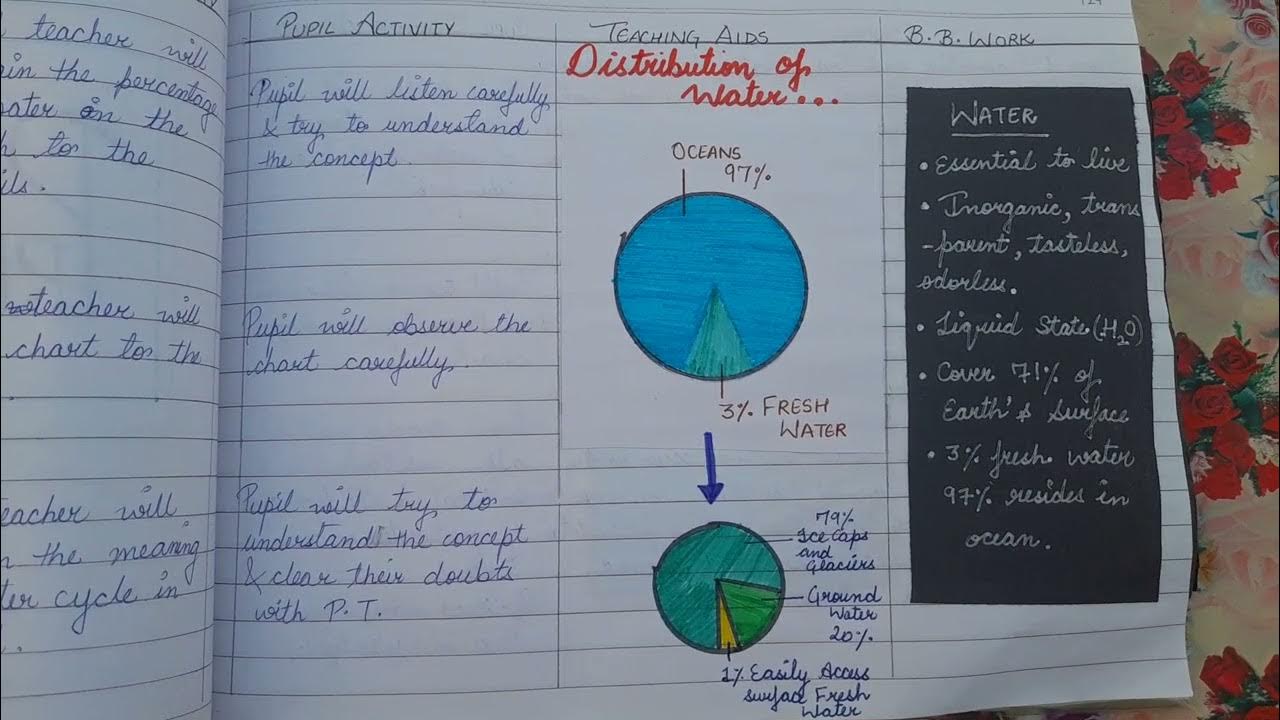 teacher will
in the percentage
ater in the
h to the
ils.
teacher will
chart to the
eacher will
n the meaning
ter cycle in
PUPIL ACTIVITY
Pupil will listen carefully
& try to understand
the concept.
Pupil will observe the
chart carefully.
Pupil will try to
understand the concept
& clear their doubts
with P.T.
TEACHING AIDS
Distribution of
Water...
OCEANS
97%
3% FRESH
WATER
79%
Ice Caps
and
Glaciers
Ground
Water
20%
1% Easily Access
Surface Fresh
Water
B.B. WORK
WATER
• Essential to live
• Inorganic, trans
-parent, tasteless,
odorless.
• Liquid State (H₂O)
• Cover 71% of
Earth's surface
• 3% fresh water
97% resides in
ocean.